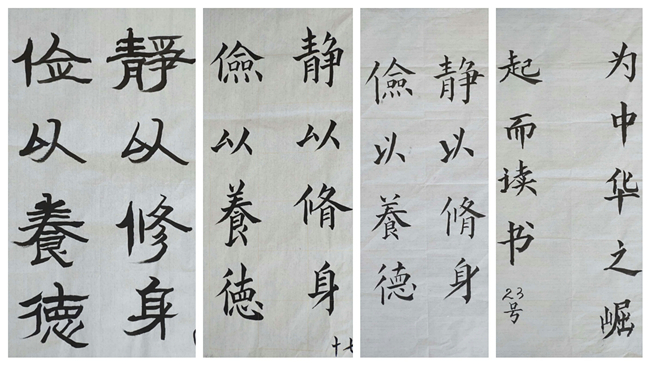 靜以修身
俭以養德
静以脩身
儉以養德
十七
静以脩身
儉以養德
为中华之崛
起而读书
23号